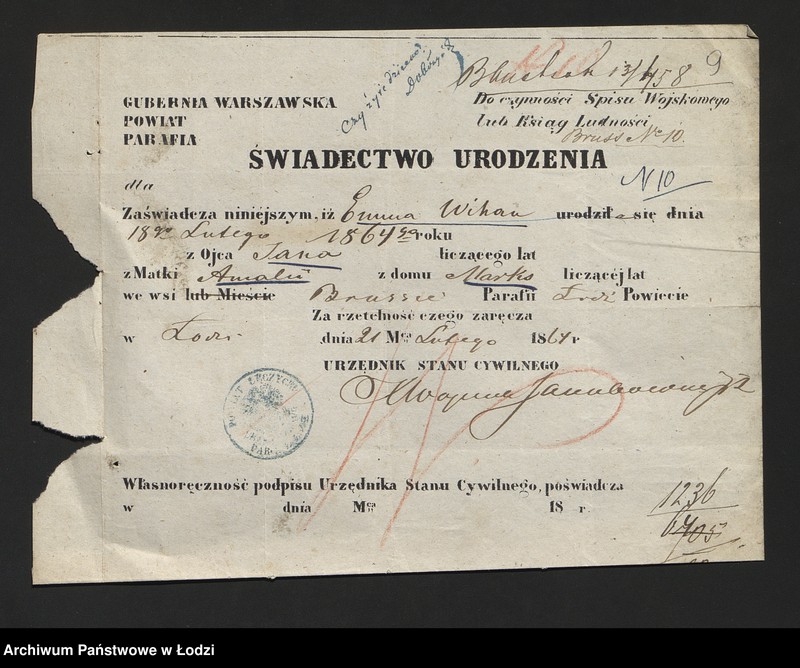 Czy żyje dziecko?
13/4 58 9
GUBERNIA WARSZAWSKA Do czynności Spisu Wojskowego
POWIAT lub Ksiąg Ludności
PARAFIA Bruss No 10.
ŚWIADECTWO URODZENIA
dla N 10
Zaświadcza niniejszym, iż Emma Wihan urodziła się dnia
18go Lutego 1864go roku
z Ojca Jana liczącego lat
z Matki Amalii z domu Marks liczącéj lat
we wsi lub Mieście Brussie Parafii Łodź Powiecie
Za rzetelność czego zaręcza
w Łodzi dnia 21 Mca Lutego 1864 r
URZĘDNIK STANU CYWILNEGO
POWIAT ŁĘCZYCKI
PAR.
Własnoręczność podpisu Urzędnika Stanu Cywilnego, poświadcza
w dnia Mca 18 r. 1236
6705
Archiwum Państwowe w Łodzi